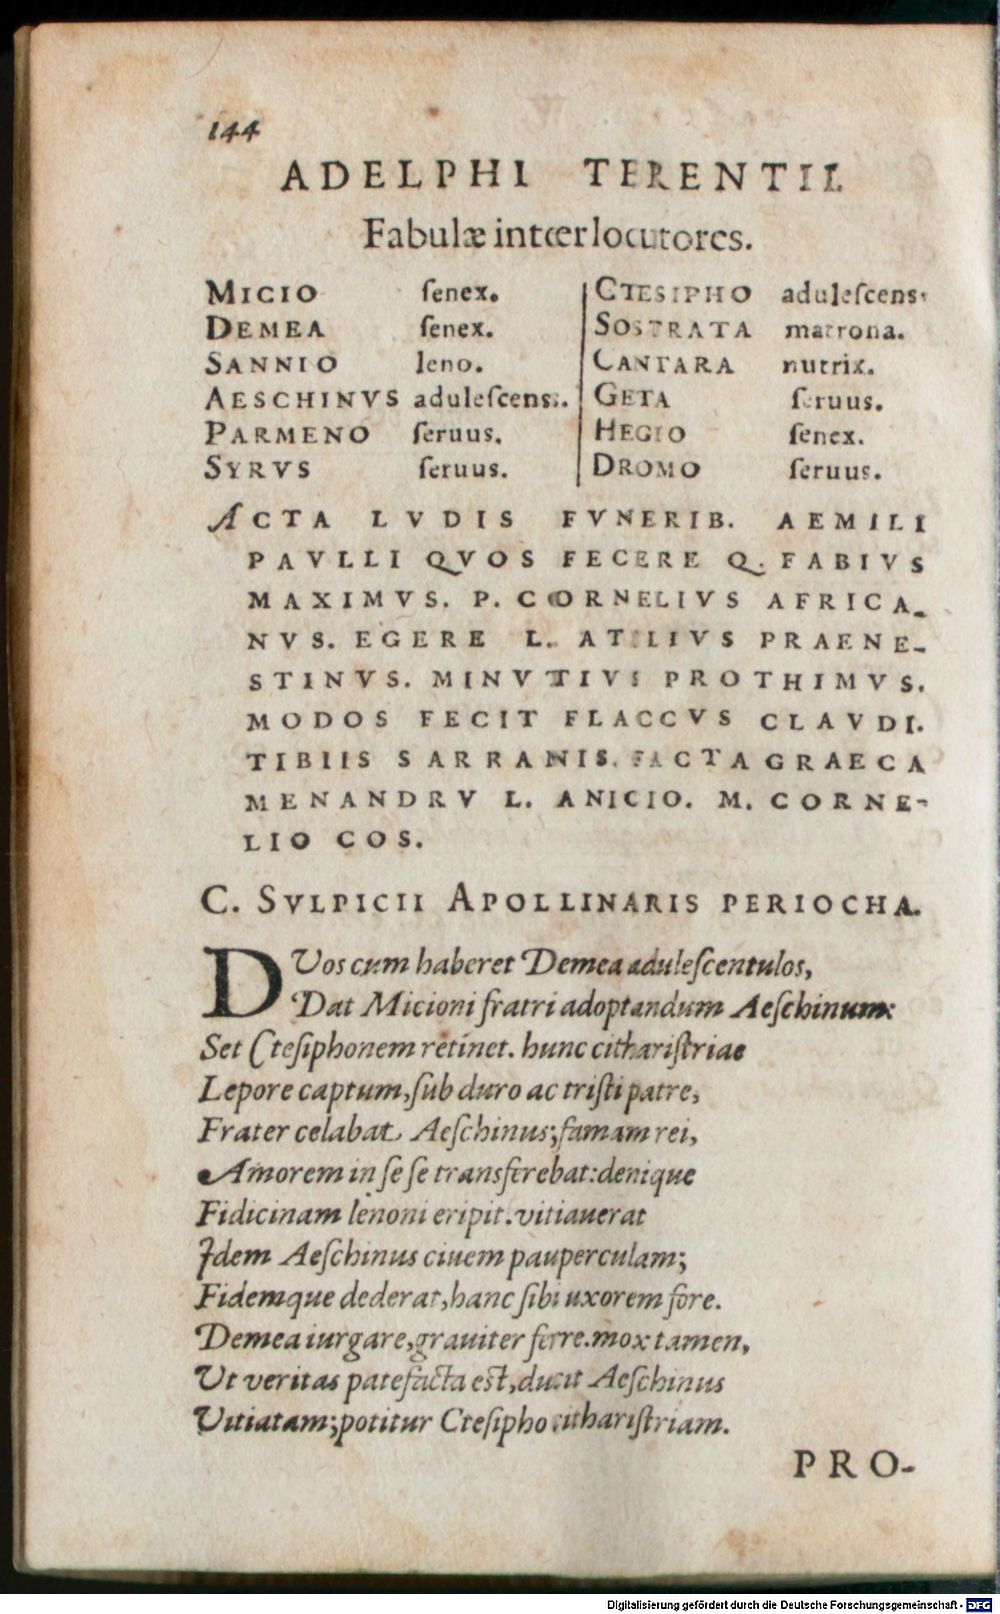 144
ADELPHI TERENTII.
Fabulæ intœrlocutores.
MICIO ſenex.
DEMEA ſenex.
SANNIO leno.
AESCHINVS aduleſcens.
PARMENO ſeruus.
SYRVS ſeruus.
CTESIPHO aduleſcens.
SOSTRATA matrona.
CANTARA nutrix.
GETA ſeruus.
HEGIO ſenex.
DROMO ſeruus.
ACTA LVDIS FVNERIB. AEMILI
PAVLLI QVOS FECERE Q. FABIVS
MAXIMVS. P. CORNELIVS AFRICA-
NVS. EGERE L. ATILIVS PRAENE-
STINVS. MINVTIVS PROTHIMVS.
MODOS FECIT FLACCVS CLAVDI.
TIBIIS SARRANIS. FACTA GRAECA
MENANDRV L. ANICIO. M. CORNE-
LIO COS.
C. SVLPICII APOLLINARIS PERIOCHA.
DVos cum haberet Demea aduleſcentulos,
Dat Micioni fratri adoptandum Aeſchinum:
Set Cteſiphonem retinet. hunc cithariſtriae
Lepore captum, ſub duro ac triſti patre,
Frater celabat Aeſchinus; famam rei,
Amorem in ſe ſe transferebat: denique
Fidicinam lenoni eripit. vitiauerat
Idem Aeſchinus ciuem pauperculam;
Fidemque dederat, hanc ſibi uxorem fore.
Demea iurgare, grauiter ferre. mox tamen,
Ut veritas patefacta est, ducit Aeſchinus
Vitiatam; potitur Cteſipho cithariſtriam.
PRO-
Digitalisierung gefördert durch die Deutsche Forschungsgemeinschaft - DFG